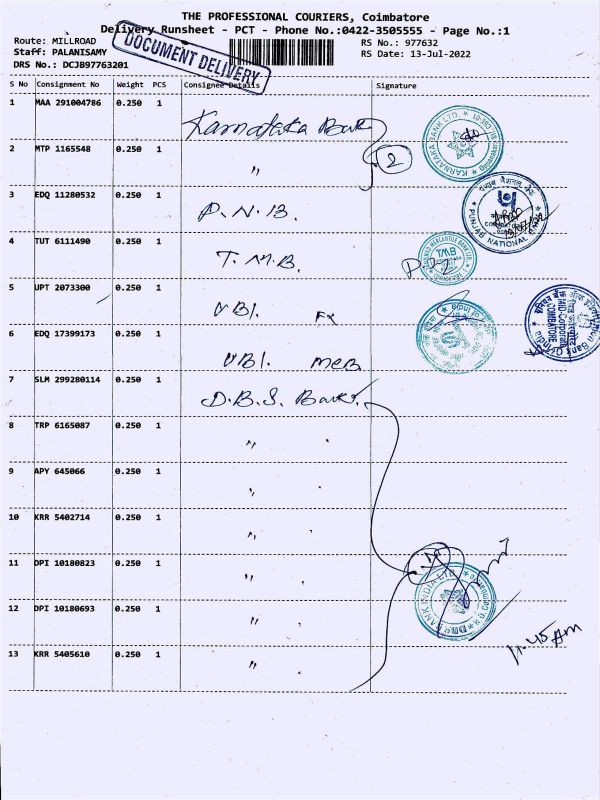 THE PROFESSIONAL COURIERS, Coimbatore
Delivery Runsheet - PCT - Phone No.:0422-3505555 - Page No.:1
Route: MILLROAD
RS No.: 977632
Staff: PALANISAMY
RS Date: 13-Jul-2022
DRS No.: DCJB97763201
DOCUMENT DELIVERY
S No Consignment No Weight PCS Consignee Details Signature
1 MAA 291004786 0.250 1 Karnataka Bank
KARNATAKA BANK LTD.
2 MTP 1165548 0.250 1 " 2
3 EDQ 11280532 0.250 1 P.N.B.
PUNJAB NATIONAL
4 TUT 6111490 0.250 1 T.M.B.
TMB
5 UPT 2073300 0.250 1 UBI. Fx
6 EDQ 17399173 0.250 1 UBI. MCB
COIMBATORE
7 SLM 299280114 0.250 1 D.B.S. Bank.
8 TRP 6165087 0.250 1 " "
9 APY 645066 0.250 1 " "
10 KRR 5402714 0.250 1 " "
11 DPI 10180823 0.250 1 " "
BANK INDIA LTD
12 DPI 10180693 0.250 1 " "
11.45 Am
13 KRR 5405610 0.250 1 " "